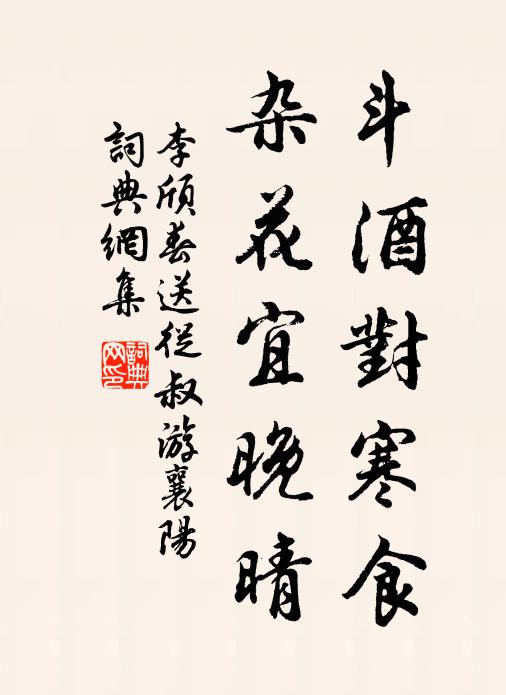 斗酒對寒食
杂花宜晚晴
李頎春送從叔游襄陽
詞典網集
詞典网印